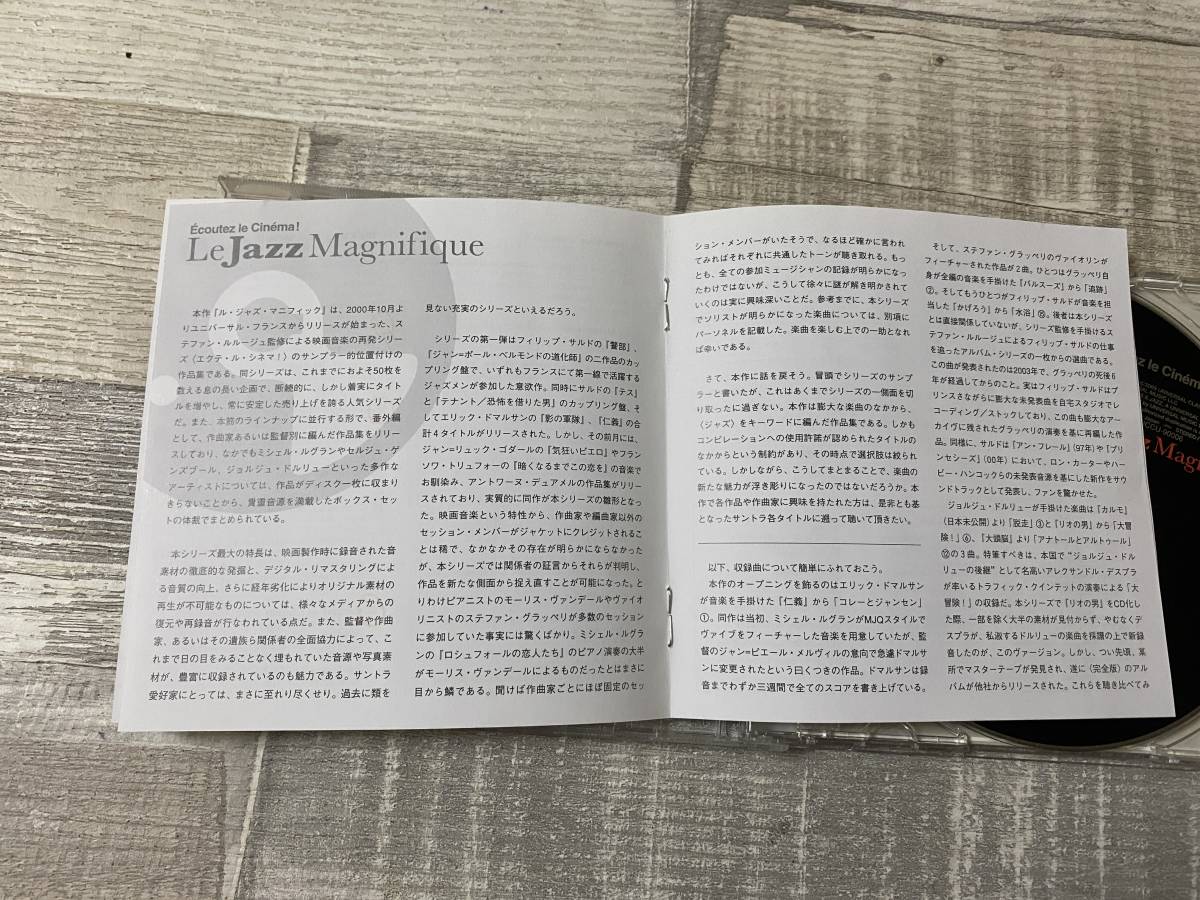 Écoutez le Cinéma!
Le Jazz Magnifique
本作『ル・ジャズ・マニフィック』は、2000年10月よ
りユニバーサル・フランスからリリースが始まった、ス
テファン・ルルージュ監修による映画音楽の再発シリー
ズ〈エクテ・ル・シネマ!〉のサンプラー的位置付けの
作品集である。同シリーズは、これまでにおよそ50枚を
数える息の長い企画で、断続的に、しかし着実にタイト
ルを増やし、常に安定した売り上げを誇る人気シリーズ
だ。また、本筋のラインナップに並行する形で、番外編
として、作曲家あるいは監督別に編んだ作品集をリリー
スしており、なかでもミシェル・ルグランやセルジュ・ゲ
ンズブール、ジョルジュ・ドルリューといった多作な
アーティストについては、作品がディスク一枚に収まり
きらないことから、貴重音源を満載したボックス・セッ
トの体裁でまとめられている。
本シリーズ最大の特長は、映画製作時に録音された音
素材の徹底的な発掘と、デジタル・リマスタリングによ
る音質の向上、さらに経年劣化によりオリジナル素材の
再生が不可能なものについては、様々なメディアからの
復元や再録音が行なわれている点だ。また、監督や作曲
家、あるいはその遺族ら関係者の全面協力によって、こ
れまで日の目をみることなく埋もれていた音源や写真素
材が、豊富に収録されているのも魅力である。サントラ
愛好家にとっては、まさに至れり尽くせり。過去に類を
見ない充実のシリーズといえるだろう。
シリーズの第一弾はフィリップ・サルドの『警部』、
『ジャン=ポール・ベルモンドの道化師』の二作品のカッ
プリング盤で、いずれもフランスにて第一線で活躍する
ジャズメンが参加した意欲作。同時にサルドの『テス』
と『テナント/恐怖を借りた男』のカップリング盤、そ
してエリック・ドマルサンの『影の軍隊』、『仁義』の合
計4タイトルがリリースされた。しかし、その前月には、
ジャン=リュック・ゴダールの『気狂いピエロ』やフラン
ソワ・トリュフォーの『暗くなるまでこの恋を』の音楽で
お馴染み、アントワーヌ・デュアメルの作品集がリリー
スされており、実質的に同作が本シリーズの雛形となっ
た。映画音楽という特性から、作曲家や編曲家以外の
セッション・メンバーがジャケットにクレジットされるこ
とは稀で、なかなかその存在が明らかにならなかった
が、本シリーズでは関係者の証言からそれらが判明し、
作品を新たな側面から捉え直すことが可能になった。と
りわけピアニストのモーリス・ヴァンデールやヴァイオ
リニストのステファン・グラッペリが多数のセッション
に参加していた事実には驚くばかり。ミシェル・ルグラ
ンの『ロシュフォールの恋人たち』のピアノ演奏の大半
がモーリス・ヴァンデールによるものだったとはまさに
目から鱗である。聞けば作曲家ごとにほぼ固定のセッ
ション・メンバーがいたそうで、なるほど確かに言われ
てみればそれぞれに共通したトーンが聴き取れる。もっ
とも、全ての参加ミュージシャンの記録が明らかになっ
たわけではないが、こうして徐々に謎が解き明かされて
いくのは実に興味深いことだ。参考までに、本シリーズ
でソリストが明らかになった楽曲については、別項に
パーソネルを記載した。楽曲を楽しむ上での一助となれ
ば幸いである。
さて、本作に話を戻そう。冒頭でシリーズのサンプ
ラーと書いたが、これはあくまでシリーズの一側面を切
り取ったに過ぎない。本作は膨大な楽曲のなかから、
〈ジャズ〉をキーワードに編んだ作品集である。しかも
コンピレーションへの使用許諾が認められたタイトルの
なかからという制約があり、その時点で選択肢は絞られ
ている。しかしながら、こうしてまとまることで、楽曲の
新たな魅力が浮き彫りになったのではないだろうか。本
作で各作品や作曲家に興味を持たれた方は、是非とも基
となったサントラ各タイトルに遡って聴いて頂きたい。
以下、収録曲について簡単にふれておこう。
本作のオープニングを飾るのはエリック・ドマルサン
が音楽を手掛けた『仁義』から「コレーとジャンセン」
①。同作は当初、ミシェル・ルグランがMJQスタイルで
ヴァイブをフィーチャーした音楽を用意していたが、監
督のジャン=ピエール・メルヴィルの意向で急遽ドマルサ
ンに変更されたという曰くつきの作品。ドマルサンは録
音までわずか三週間で全てのスコアを書き上げている。
そして、ステファン・グラッペリのヴァイオリンが
フィーチャーされた作品が2曲。ひとつはグラッペリ自
身が全編の音楽を手掛けた『バルスーズ』から「追跡」
②。そしてもうひとつがフィリップ・サルドが音楽を担
当した『かげろう』から「水浴」⑯。後者は本シリーズ
とは直接関係していないが、シリーズ監修を手掛けるス
テファン・ルルージュによるフィリップ・サルドの仕事
を追ったアルバム・シリーズの一枚からの選曲である。
この曲が発表されたのは2003年で、グラッペリの死後6
年が経過してからのこと。実はフィリップ・サルドはプ
リンスさながらに膨大な未発表曲を自宅スタジオでレ
コーディング/ストックしており、この曲も膨大なアー
カイヴに残されたグラッペリの演奏を基に再編した作
品。同様に、サルドは『アン・フレール』(97年)や『プリ
ンセシーズ』(00年)において、ロン・カーターやハー
ビー・ハンコックらの未発表音源を基にした新作をサウ
ンドトラックとして発表し、ファンを驚かせた。
ジョルジュ・ドルリューが手掛けた楽曲は『カルモ』
(日本未公開)より「脱走」③と『リオの男』から「大冒
険!」⑥、『大頭脳』より「アナトールとアルトゥール」
⑫の3曲。特筆すべきは、本国で“ジョルジュ・ドル
リューの後継”として名高いアレクサンドル・デスプラ
が率いるトラフィック・クインテットの演奏による「大
冒険!」の収録だ。本シリーズで『リオの男』をCD化し
た際、一部を除く大半の素材が見付からず、やむなくデ
スプラが、私淑するドルリューの楽曲を採譜の上で新録
音したのが、このヴァージョン。しかし、つい先頃、某
所でマスターテープが発見され、遂に〈完全版〉のアル
バムが他社からリリースされた。これらを聴き比べてみ
z le Cinéma
UCCU-90506
Magn